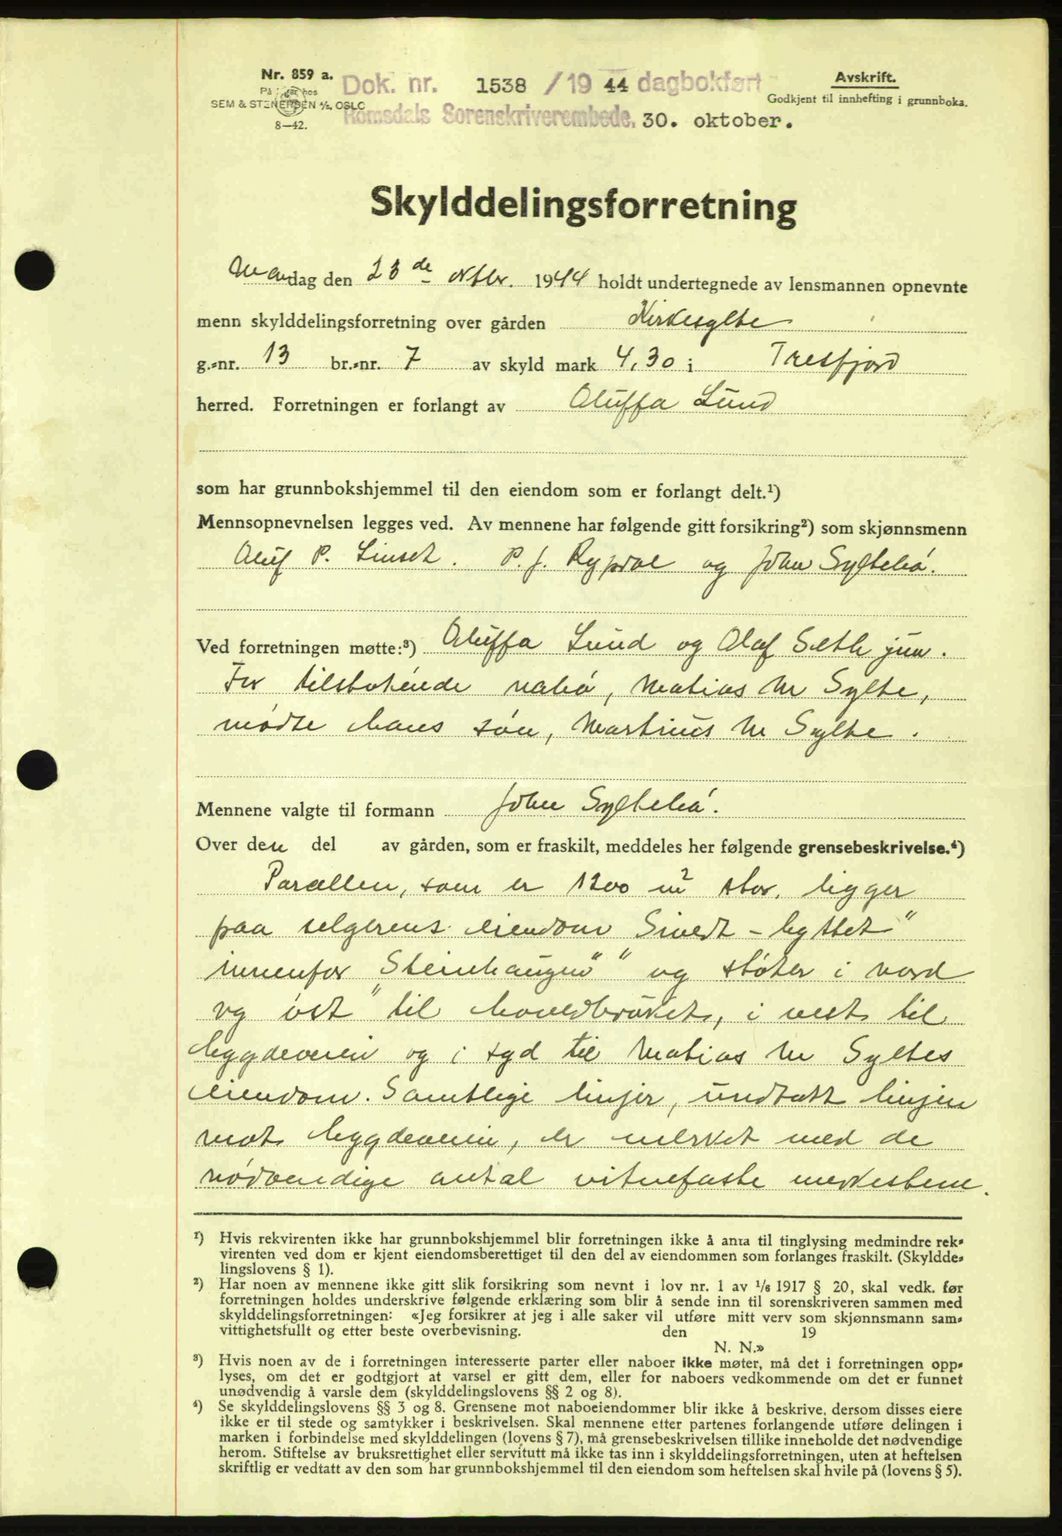 Nr. 859 a.
På lager hos
SEM & STENERSEN A/S, OSLO
8—42.
Dok. nr. 1538 / 19 44 dagbokført
Romsdals Sorenskriverembede, 30. oktober.
Avskrift.
Godkjent til innhefting i grunnboka.
Skylddelingsforretning
Mandag den 23de oktbr. 1944 holdt undertegnede av lensmannen opnevnte
menn skylddelingsforretning over gården Kirkesylte
g.-nr. 13 br.-nr. 7 av skyld mark 4,30 i Tresfjord
herred. Forretningen er forlangt av Oluffa Lund
som har grunnbokshjemmel til den eiendom som er forlangt delt.¹)
Mennsopnevnelsen legges ved. Av mennene har følgende gitt forsikring²) som skjønnsmenn
Oluf P. Linset. P. J. Rypdal og John Syltebø.
Ved forretningen møtte:³) Oluffa Lund og Olaf Sæth jun.
For tilstøtende nabo, Matias M Sylte,
mødte hans søn, Martinus M Sylte.
Mennene valgte til formann John Syltebø.
Over den del av gården, som er fraskilt, meddeles her følgende grensebeskrivelse.⁴)
Parcellen, som er 1200 m² stor, ligger
paa selgerens eiendom byttet"
innenfor "Steinhaugen" og støter i nord
og øst til hovedbruket, i vest til
bygdeveien og i syd til Matias M Syltes
eiendom. Samtlige linjer, undtatt linjen
mot bygdeveien, er merket med de
nødvendige antal vitnefaste merkestene.
¹) Hvis rekvirenten ikke har grunnbokshjemmel blir forretningen ikke å anta til tinglysing medmindre rek-
virenten ved dom er kjent eiendomsberettiget til den del av eiendommen som forlanges fraskilt. (Skyldde-
lingslovens § 1).
²) Har noen av mennene ikke gitt slik forsikring som nevnt i lov nr. 1 av 1/6 1917 § 20, skal vedk. før
forretningen holdes underskrive følgende erklæring som blir å sende inn til sorenskriveren sammen med
skylddelingsforretningen: «Jeg forsikrer at jeg i alle saker vil utføre mitt verv som skjønnsmann sam-
vittighetsfullt og etter beste overbevisning. den 19
N. N.»
³) Hvis noen av de i forretningen interesserte parter eller naboer ikke møter, må det i forretningen opp-
lyses, om det er godtgjort at varsel er gitt dem, eller for naboers vedkommende om det er funnet
unødvendig å varsle dem (skylddelingslovens §§ 2 og 8).
⁴) Se skylddelingslovens §§ 3 og 8. Grensene mot naboeiendommer blir ikke å beskrive, dersom disses eiere
ikke er til stede og samtykker i beskrivelsen. Skal mennene etter partenes forlangende utføre delingen i
marken i forbindelse med skylddelingen (lovens § 7), må grensebeskrivelsen tillike inneholde det nødvendige
herom. Stiftelse av bruksrettighet eller servitutt må ikke tas inn i skylddelingsforretningen, uten at heftelsen
skriftlig er vedtatt av den som har grunnbokshjemmel til den eiendom som heftelsen skal hvile på (lovens § 5).